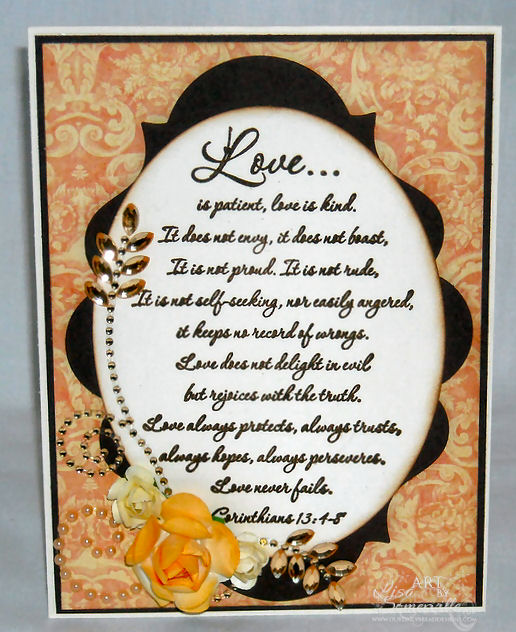 Love...
is patient, love is kind.
It does not envy, it does not boast,
It is not proud. It is not rude,
It is not self-seeking, nor easily angered,
it keeps no record of wrongs.
Love does not delight in evil
but rejoices with the truth.
Love always protects, always trusts,
always hopes, always perseveres.
Love never fails.
Corinthians 13:4-8
ART
BY
Lisa
Somerville